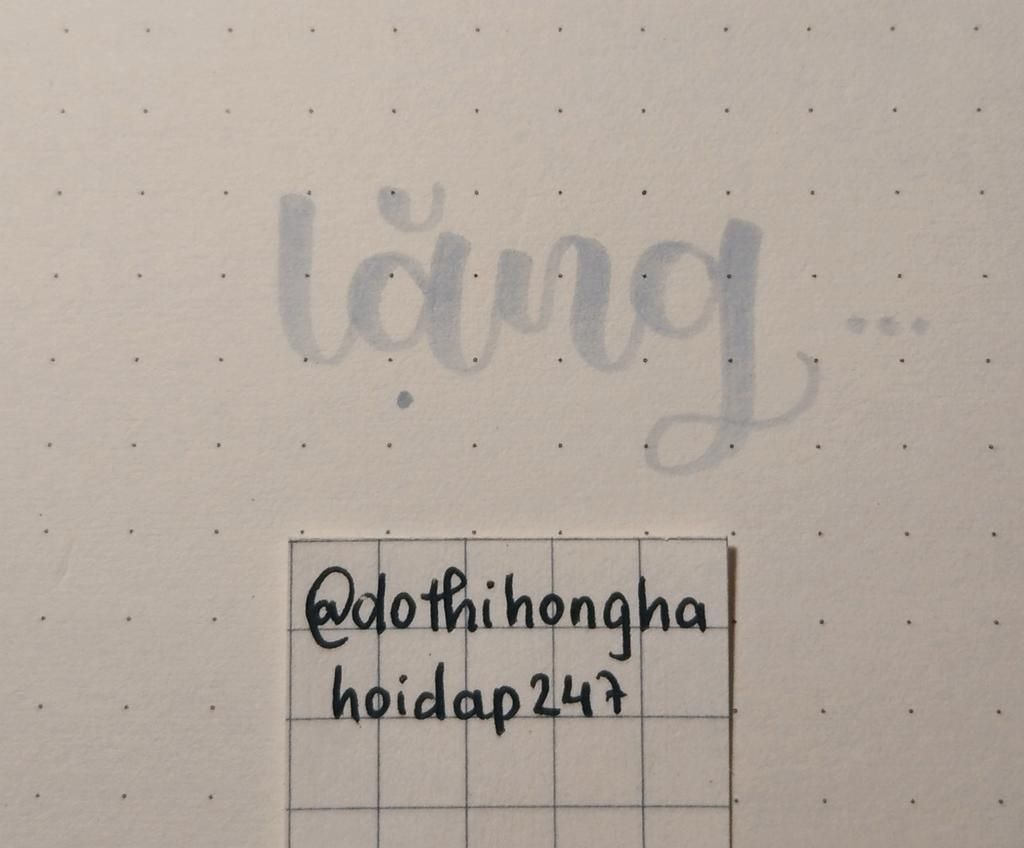 lặng ...
@dothihongha
hoidap247